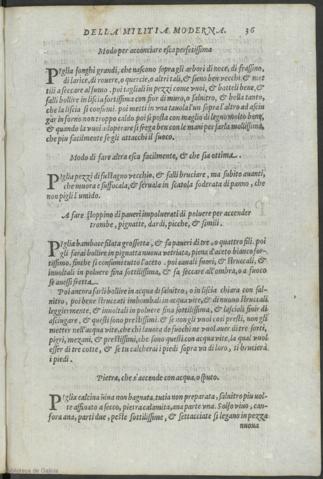 DELLA MILITIÆ MODERNA. 36
Modo per acconciare esca perfettissima
Piglia fonghi grandi, che nascono sopra gli arbori di noce, di frassino,
di larice, di rouere, o quercie, o altri tali, & sieno ben vecchi & met
tili a seccare al fumo. poi tagliali in pezzi come vuoi, & batteli bene, &
falli bollire in liscia fortissima con fior di muro, o salnitro, & bolla tanto,
che la liscia si consumi. poi metti in vna tauola l'un sopra l'altro ad asciu
gar in forno non troppo caldo. poi si pesta con maglio di legno molto bene,
& quando la vuoi adoperare si frega ben con le mani per farla mollissima,
che piu facilmente segli attacchi il fuoco.
Modo di fare altra esca facilmente, & che sia ottima.
Piglia pezzi di fustagno vecchio, & falli bruciare, ma subito auanti,
che muora e suffocala, & seruala in scatola foderata di panno, che
non pigli l'umido.
A fare stoppino di paueri impoluerati di poluere per accender
trombe, pignatte, dardi, picche, & simili.
Piglia bambace filata grossetta, & fa paueri di tre, o quattro fili. poi
gli farai bollire in pignatta nuoua vetriata, piena d'aceto bianco for-
tissimo, finche si consumi tutto l'aceto. poi cauali fuori, & struccali, &
inuoltali in poluere fina sottilissima, & fa seccare all'ombra, o a fuoco
se auessi fretta.
Poi ancora farli bollire in acqua di salnitro, o in liscia chiara con sal-
nitro, poi bene struccati imbombali in acqua vite, & di nuouo struccali
leggiermente, & inuoltali in poluere fina sottilissima, & lasciali finir di
asciugare, & questi sono prestissimi. & se non gli vuoi cosi presti, non gli
metter nell'acqua vite, che chi lauora de fuochi ne vuol auer di tre sorti,
pigri, mezani, & prestissimi, che sono questi con acqua vite, la qual vuol
esser di tre cotte, & se tu calcherai i piedi sopra vn di loro, ti brucierà
i piedi.
Pietra, che s'accende con acqua, o sputo.
Piglia calcina non bagnata, tutia non preparata, salnitro piu vol-
te affinato a secco, pietra calamita, ana parte vna. Solfo viuo, can-
fora ana, parti due, peste sottilissime, & settacciate si legano in pezza
nuoua
Biblioteca de Galicia